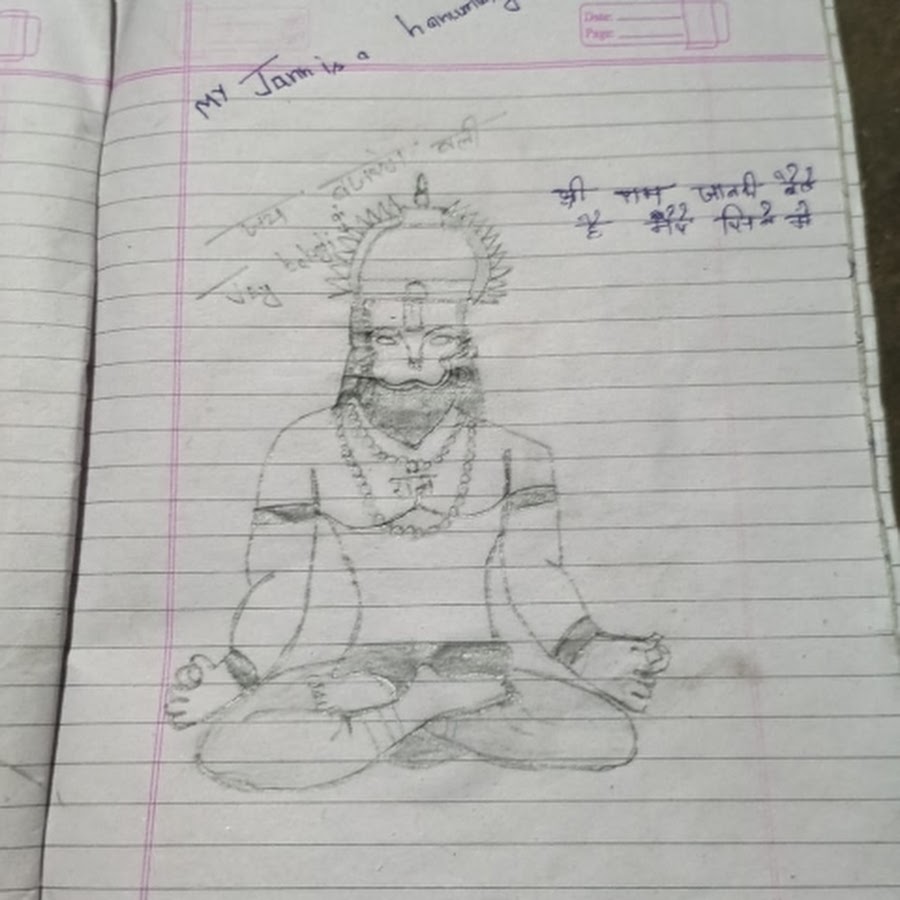 MY Jann is a hanuman
Date:
Page:
जय बजरंग बली
Jay balaji
श्री राम जानकी बैठे
है मेरे सिने में
राम